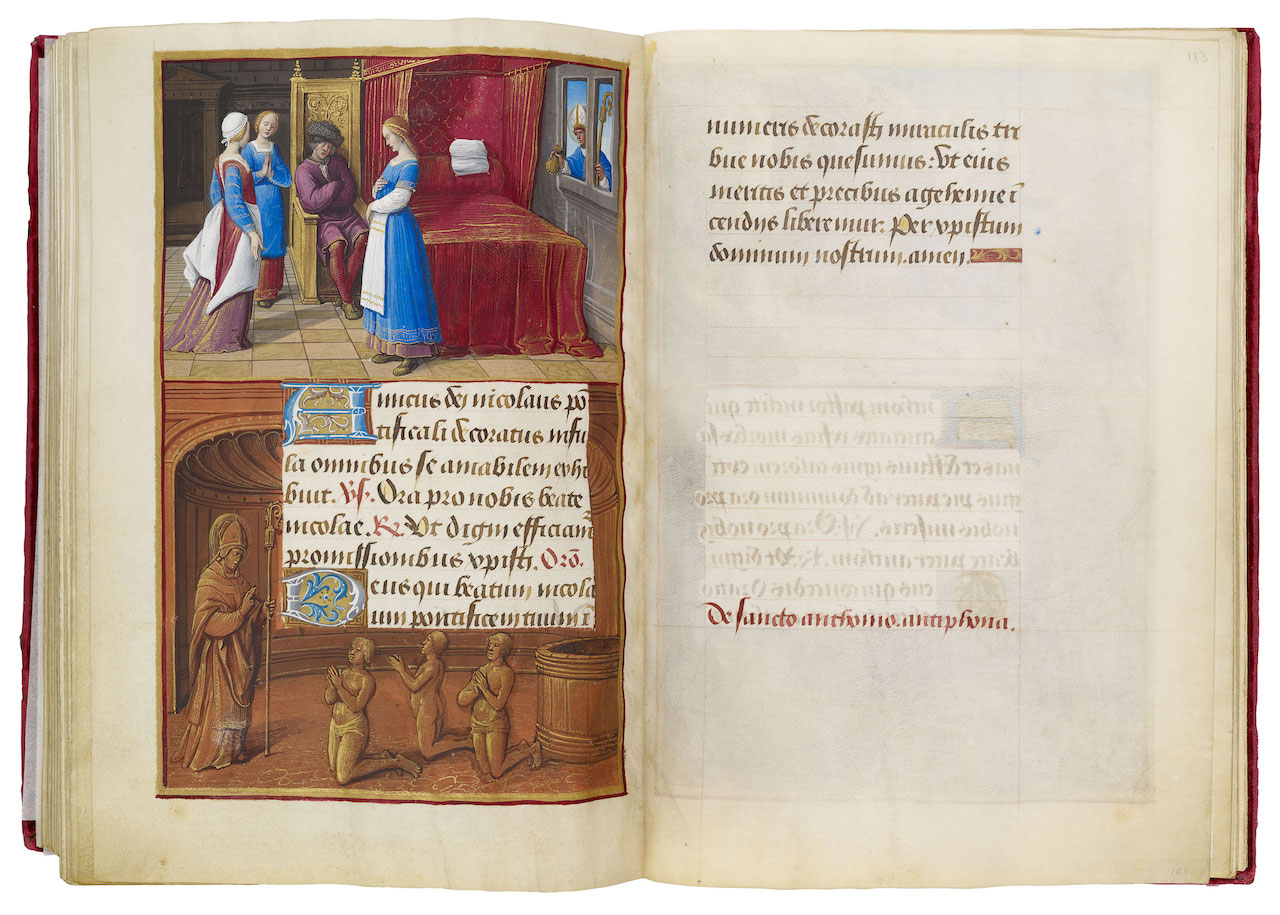 Amicus dei nicolaus po
tificali decoratus infu
la omnibus se amabilem exhi
buit. V. Ora pro nobis beate
nicolae. R. Ut digni efficiam̄
promissionibus xpisti. Orō.
Deus qui beatum nicola
um pontificem tuum ī
183
numeris decorasti miraculis tri
bue nobis quesumus: Ut eius
meritis et precibus a gehenne ī
cendijs liberemur. Per xpistum
dominum nostrum. amen.
De sancto anthonio. antiphona.